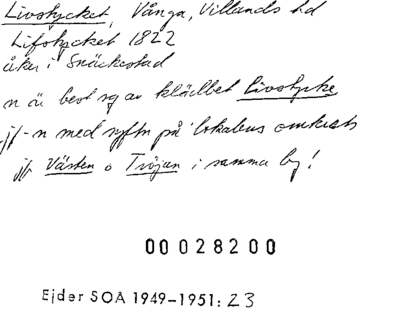 Livstycket, Vånga, Villands hd
Lifstycket 1822
åker i Snäckestad
n är best sg av klädbet livstycke
jf-n med syftn på lokalens omkrets
jfr Västen o Tröjan i samma by!
00 028200
Ejder SOA 1949-1951: 23